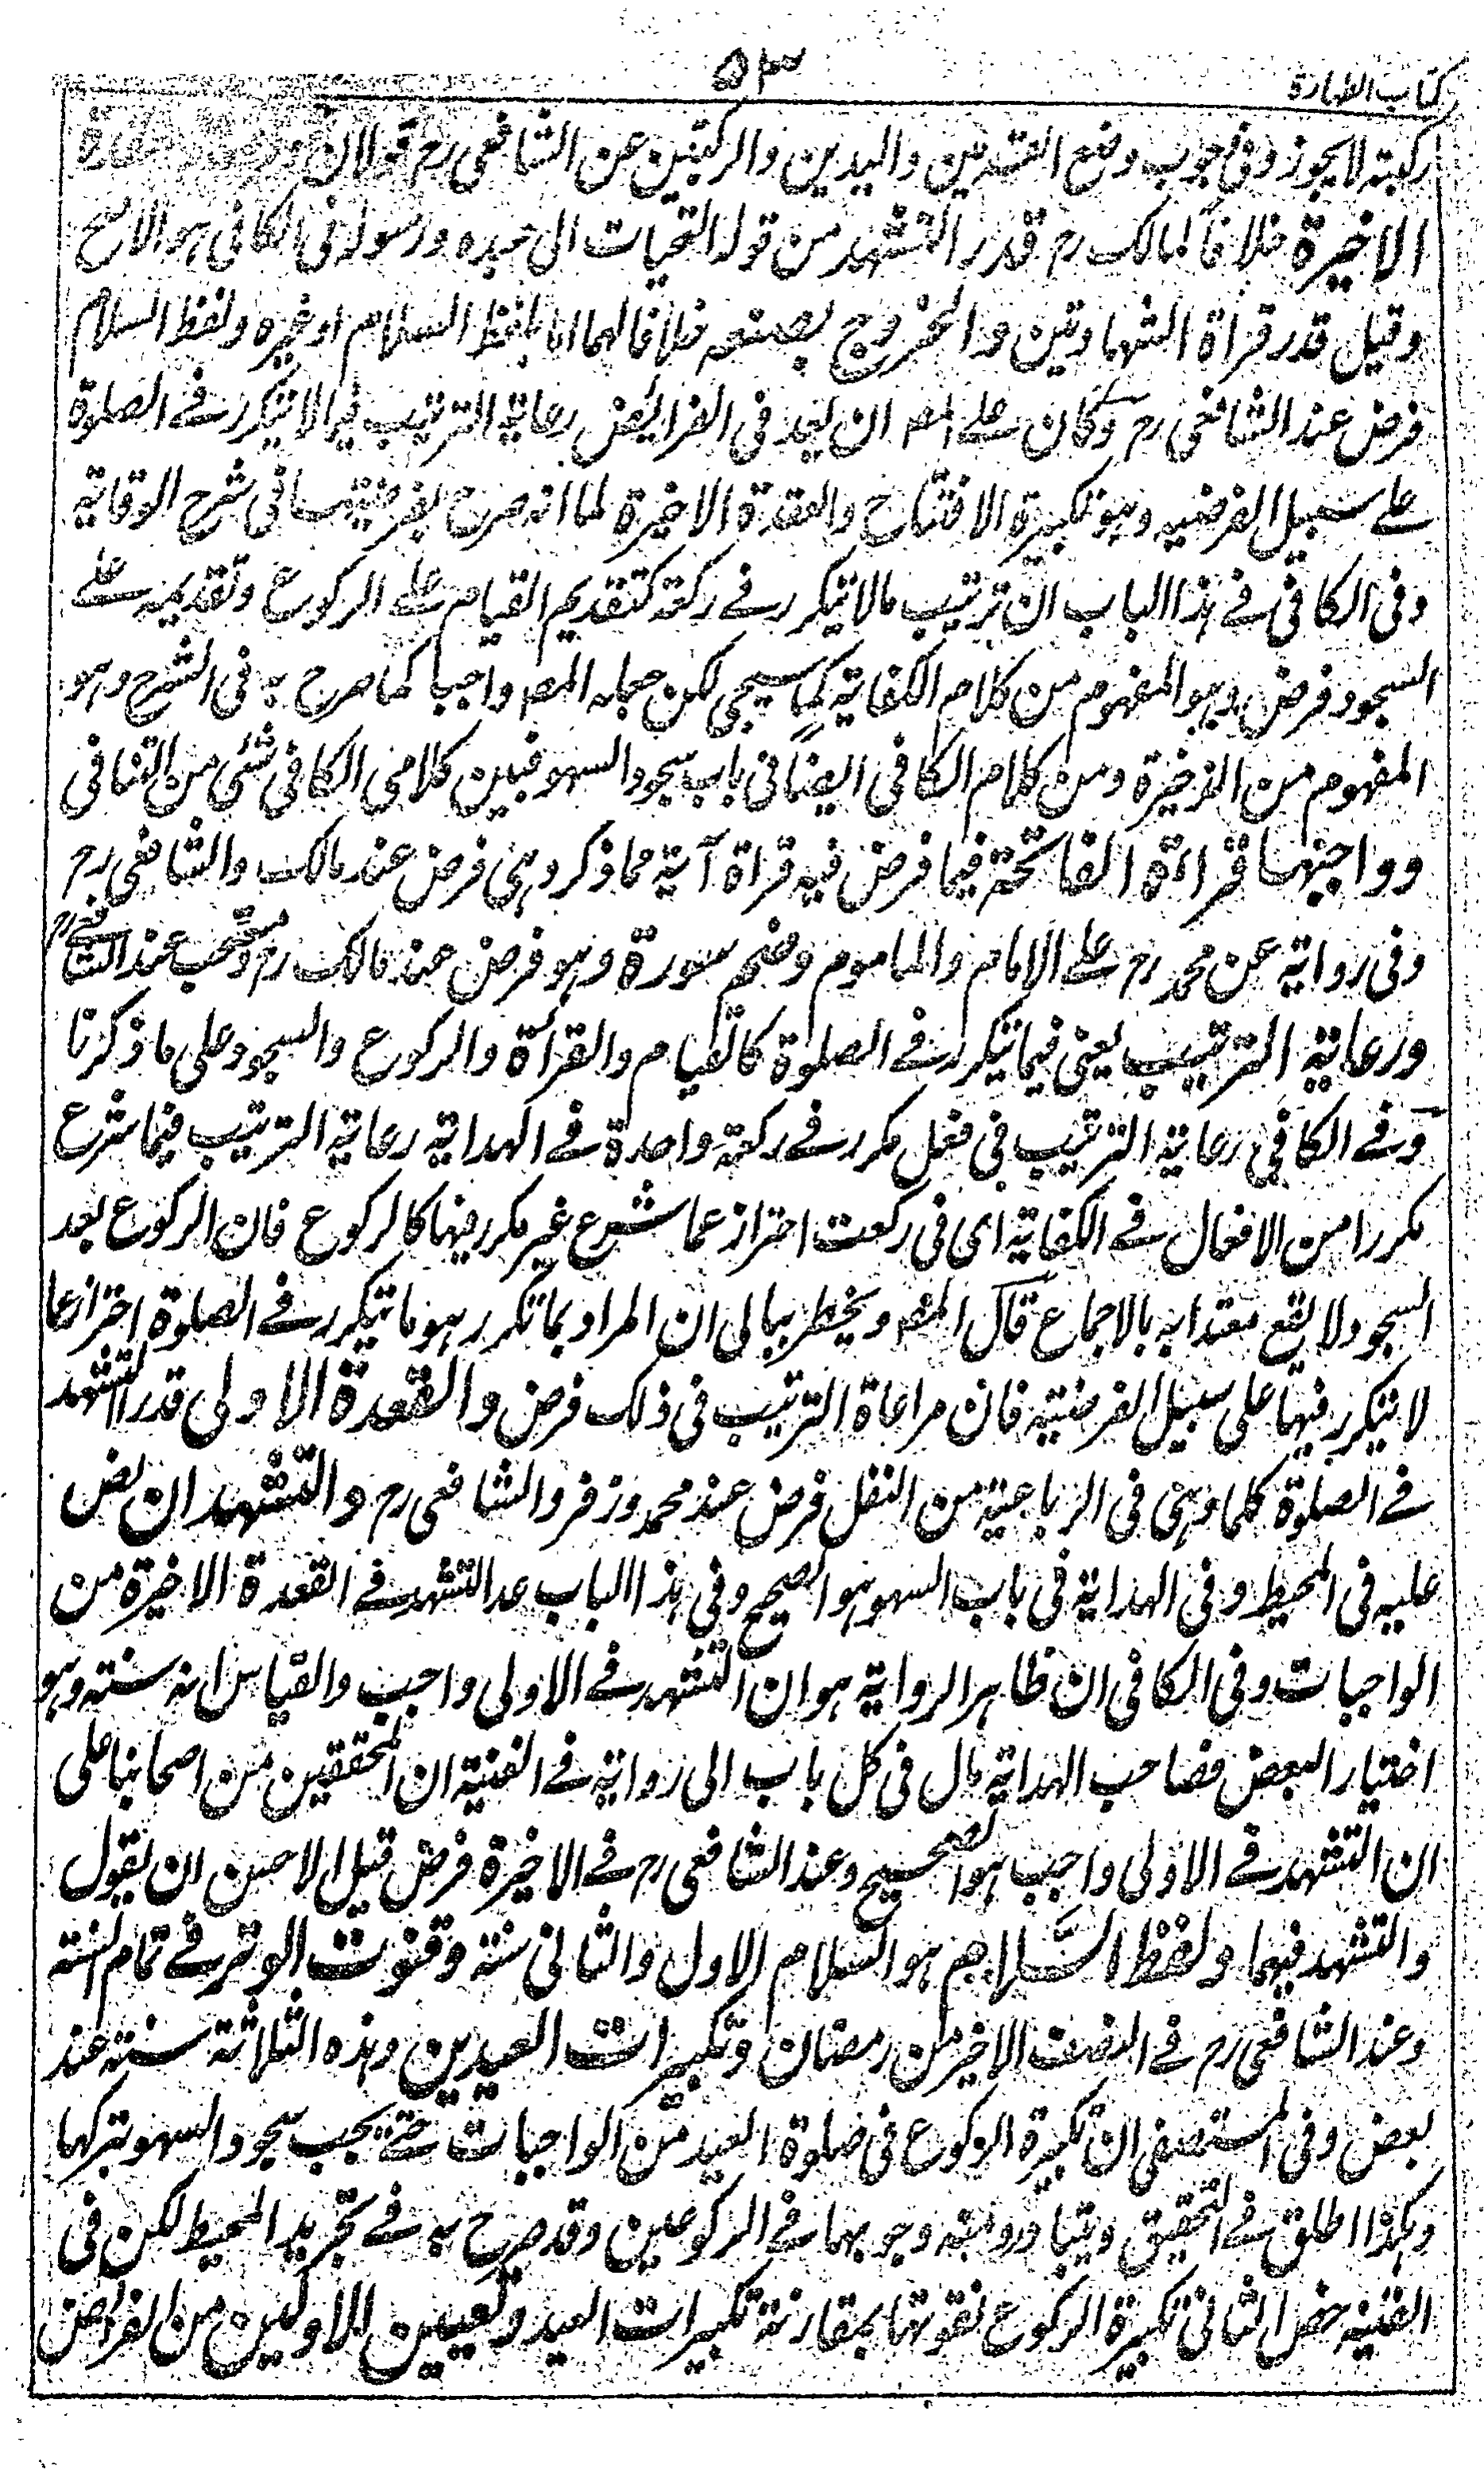 كتاب الطهارة
٥٣
ركبته لا يجوز وفي وجوب وضع القدمين واليدين والركبتين عن الشافعي رح قولان
الاخيرة خلافا لمالك رح قدر التشهد من قوله التحيات الى عبده ورسوله في الكافي هو الاصح
وقيل قدر قراة الشهادتين والخروج بصنعه خلافا لهما اما بلفظ السلام او غيره ولفظ السلام
فرض عند الشافعي رح وكان على المص ان يعد في الفرائض رعاية الترتيب فيما لا يتكرر في الصلوة
على سبيل الفرضيه وهو تكبيرة الافتتاح والقعدة الاخيرة لما انه صرح بفرضيتهما في شرح الوقاية
وفي الكافي في هذا الباب ان ترتيب ما لا يتكرر في ركعة كتقديم القيام على الركوع وتقديمه على
السجود فرض وهو المفهوم من كلام الكفاية كما سيجي لكن جعله المص واجبا كما صرح به في الشرح وهو
المفهوم من الذخيرة ومن كلام الكافي ايضا في باب سجود السهو فبين كلامي الكافي شئ من التنافي
وواجبها قراءة الفاتحة فيما فرض فيه قراة آية مما ذكر وهي فرض عند مالك والشافعي رح
وفي رواية عن محمد رح على الامام والماموم وضم سورة وهو فرض عند مالك رح ومستحب عند الشافعي رح
ورعاية الترتيب يعني فيما يتكرر في الصلوة كالقيام والقرائة والركوع والسجود على ما ذكرنا
وفي الكافي رعاية الترتيب في فعل مكرر في ركعة واحدة في الهداية رعاية الترتيب فيما شرع
مكررا من الافعال في الكفاية اى في ركعت احتراز عما شرع غير مكرر فيها كالركوع فان الركوع بعد
السجود لا يقع معتدا به بالاجماع قال المص ويخطر ببالى ان المراد بما تكرر هو ما يتكرر في الصلوة احترازا عما
لا يتكرر فيها على سبيل الفرضية فان مراعاة الترتيب في ذلك فرض والقعدة الاولى قدر التشهد
في الصلوة كلها وهي في الرباعية من النفل فرض عند محمد وزفر والشافعي رح والتشهدان نص
عليه في المحيط وفي الهداية في باب السهو هو الصحيح وفي هذا الباب عد التشهد في القعدة الاخيرة من
الواجبات وفي الكافي ان ظاهر الرواية هو ان التشهد في الاولى واجب والقياس انه سنته وهو
اختيار البعض فصاحب الهداية مال في كل باب الى رواية في القنية ان المحققين من اصحابنا على
ان التشهد في الاولى واجب هو الصحيح وعند الشافعي رح في الاخيرة فرض قيل الاحسن ان يقول
والتشهد فيهما ولفظ السّلام هو السلام الاول والثانى سنة وقنوت الوتر في تمام السنة
وعند الشافعي رح في النصف الاخير من رمضان وتكبيرات العيدين وهذه الثلاثة سنته عند
بعض وفي المستصفى ان تكبيرة الركوع في صلوة العيد من الواجبات حتى يجب سجود السهو بتركها
وهكذا اطلق في التحقيق ويتبادر منه وجوبهما في الركوعين وقد صرح به في تجريد المحيط لكن في
القنيه خص الثاني تكبيرة الركوع لفوتها بمقارنة تكبيرات العيد وتعيين الاوليين من الفرائض